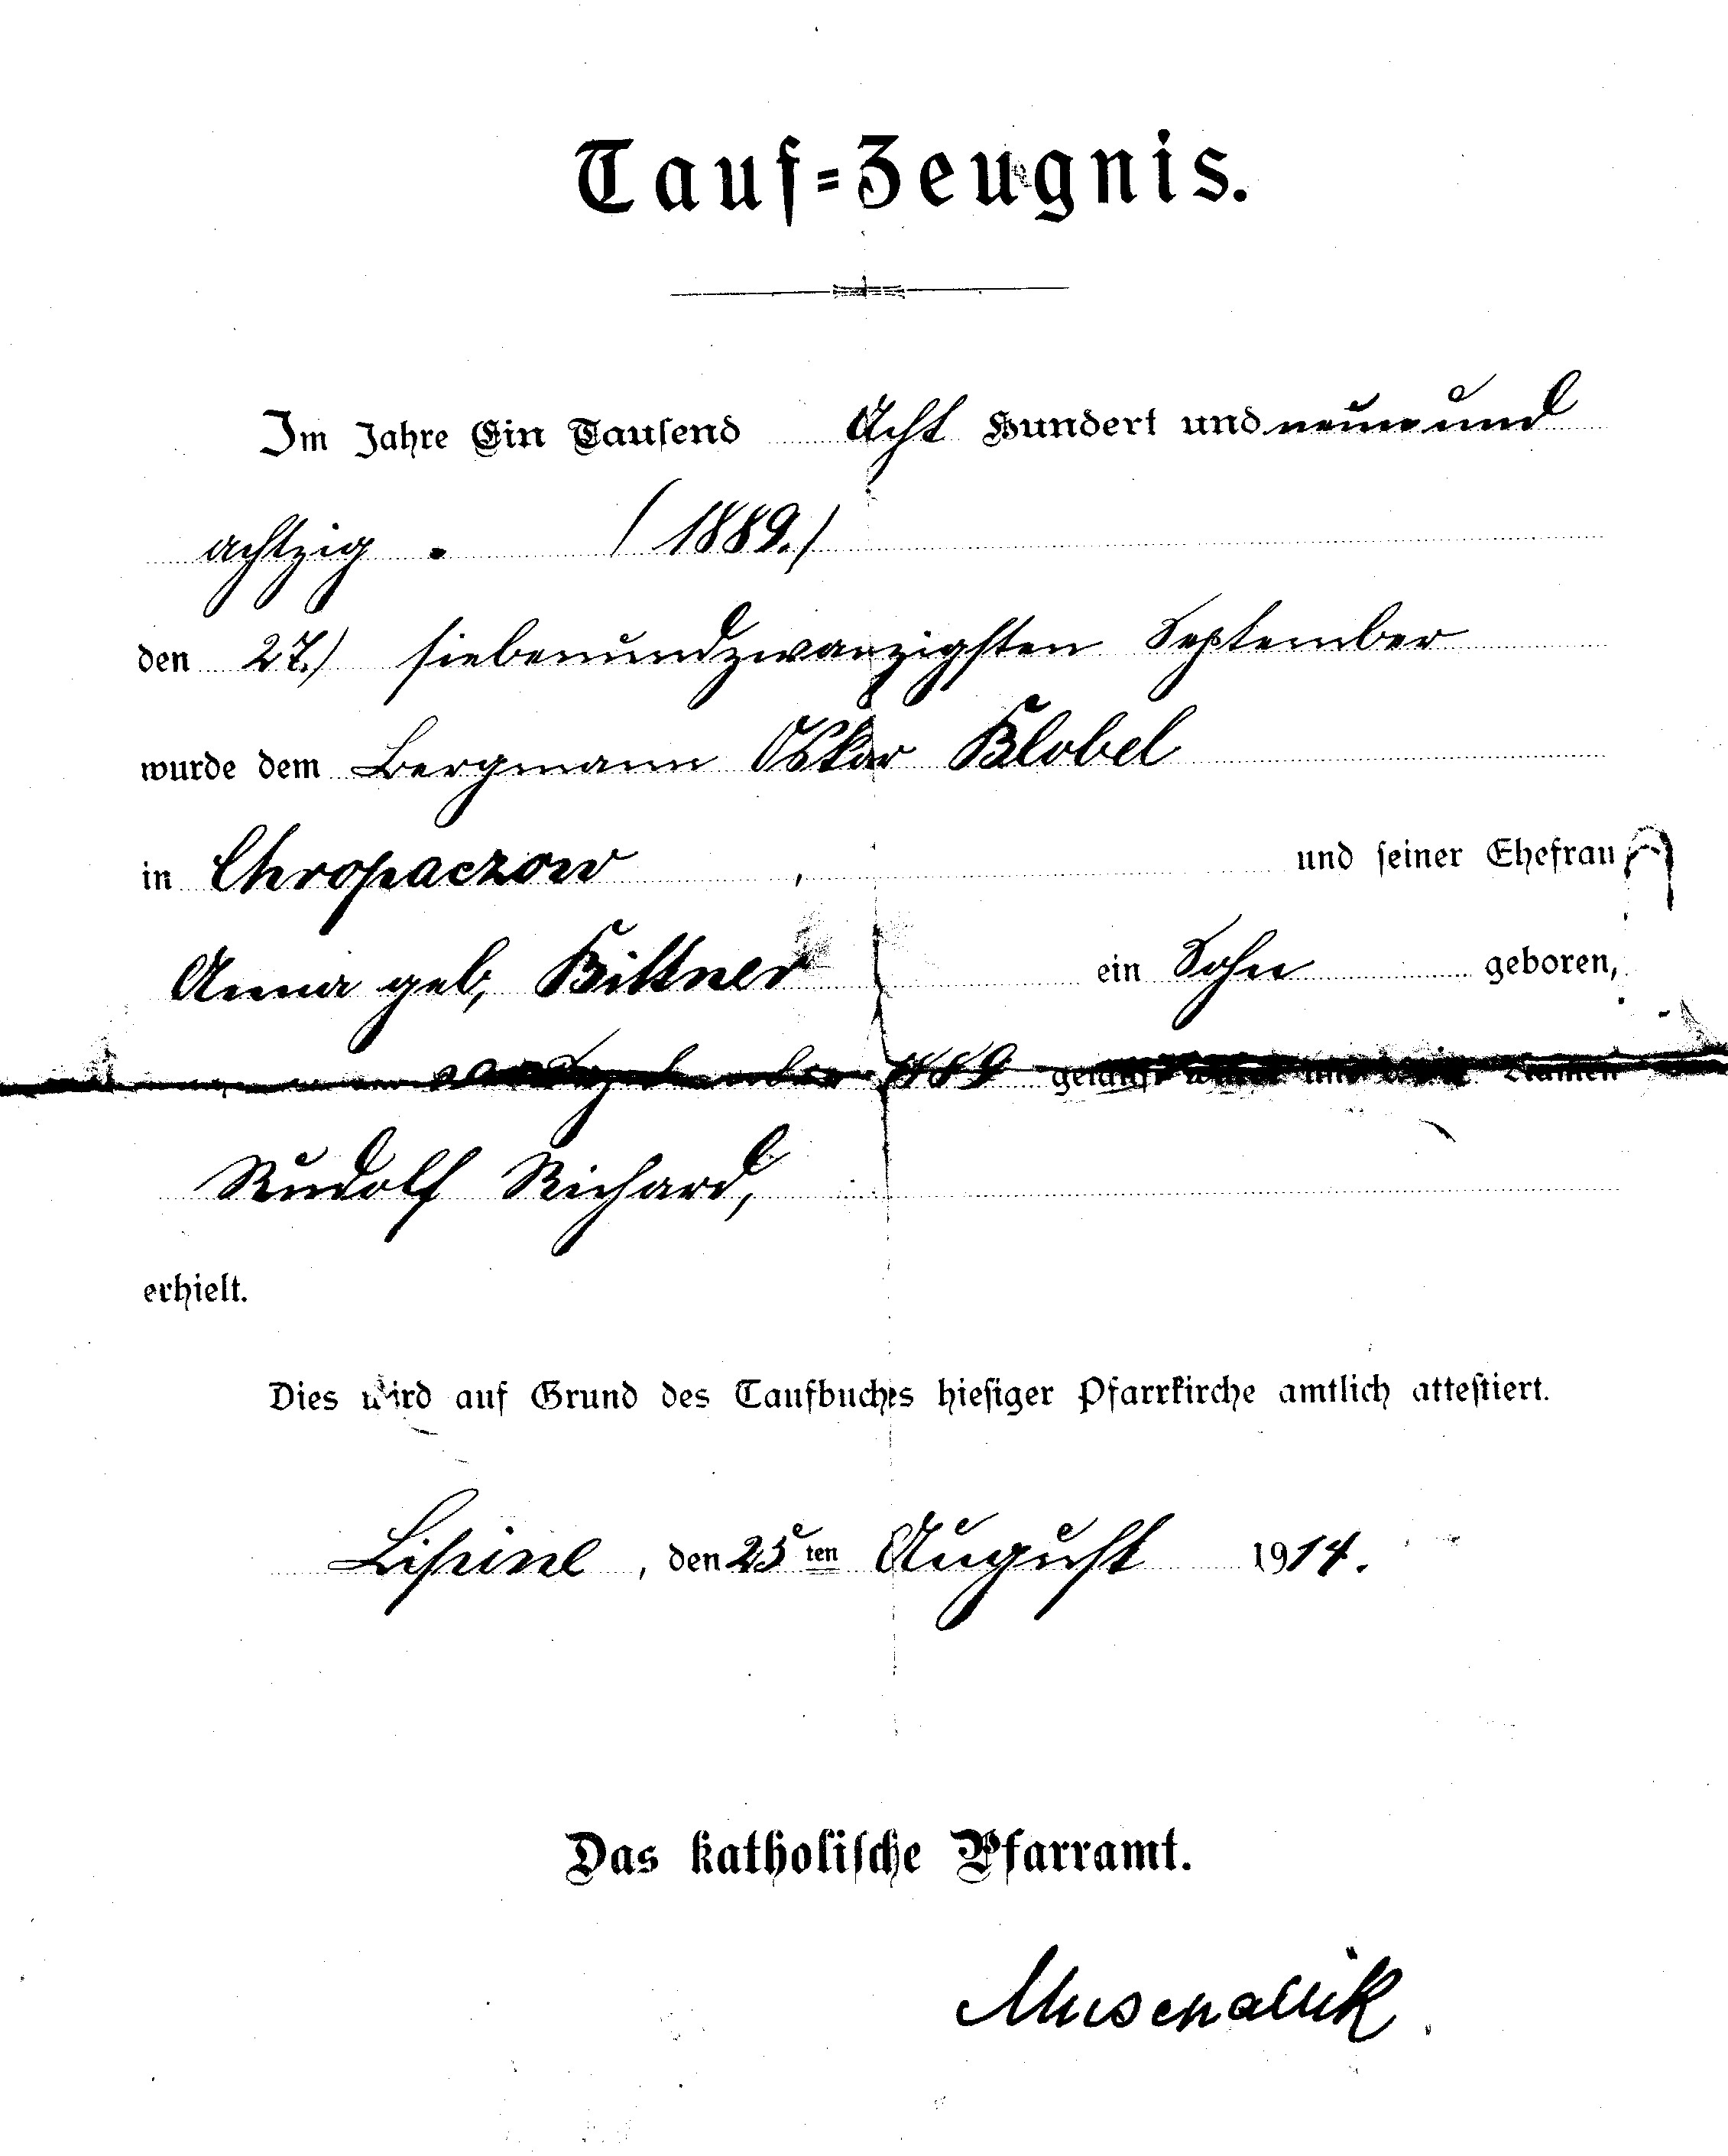 Tauf-Zeugnis.
Im Jahre Ein Tausend Acht Hundert und neunund
achtzig. (1889.)
den 27.) siebenundzwanzigsten September
wurde dem Bergmann Oskar Klobel
in Chropaczow, und seiner Ehefrau
Anna geb. Bittner ein Sohn geboren,
September 1889 getauft wurde und den Namen
Rudolf Richard,
erhielt.
Dies wird auf Grund des Taufbuches hiesiger Pfarrkirche amtlich attestiert.
Lipine, den 25ten August 1914.
Das katholische Pfarramt.